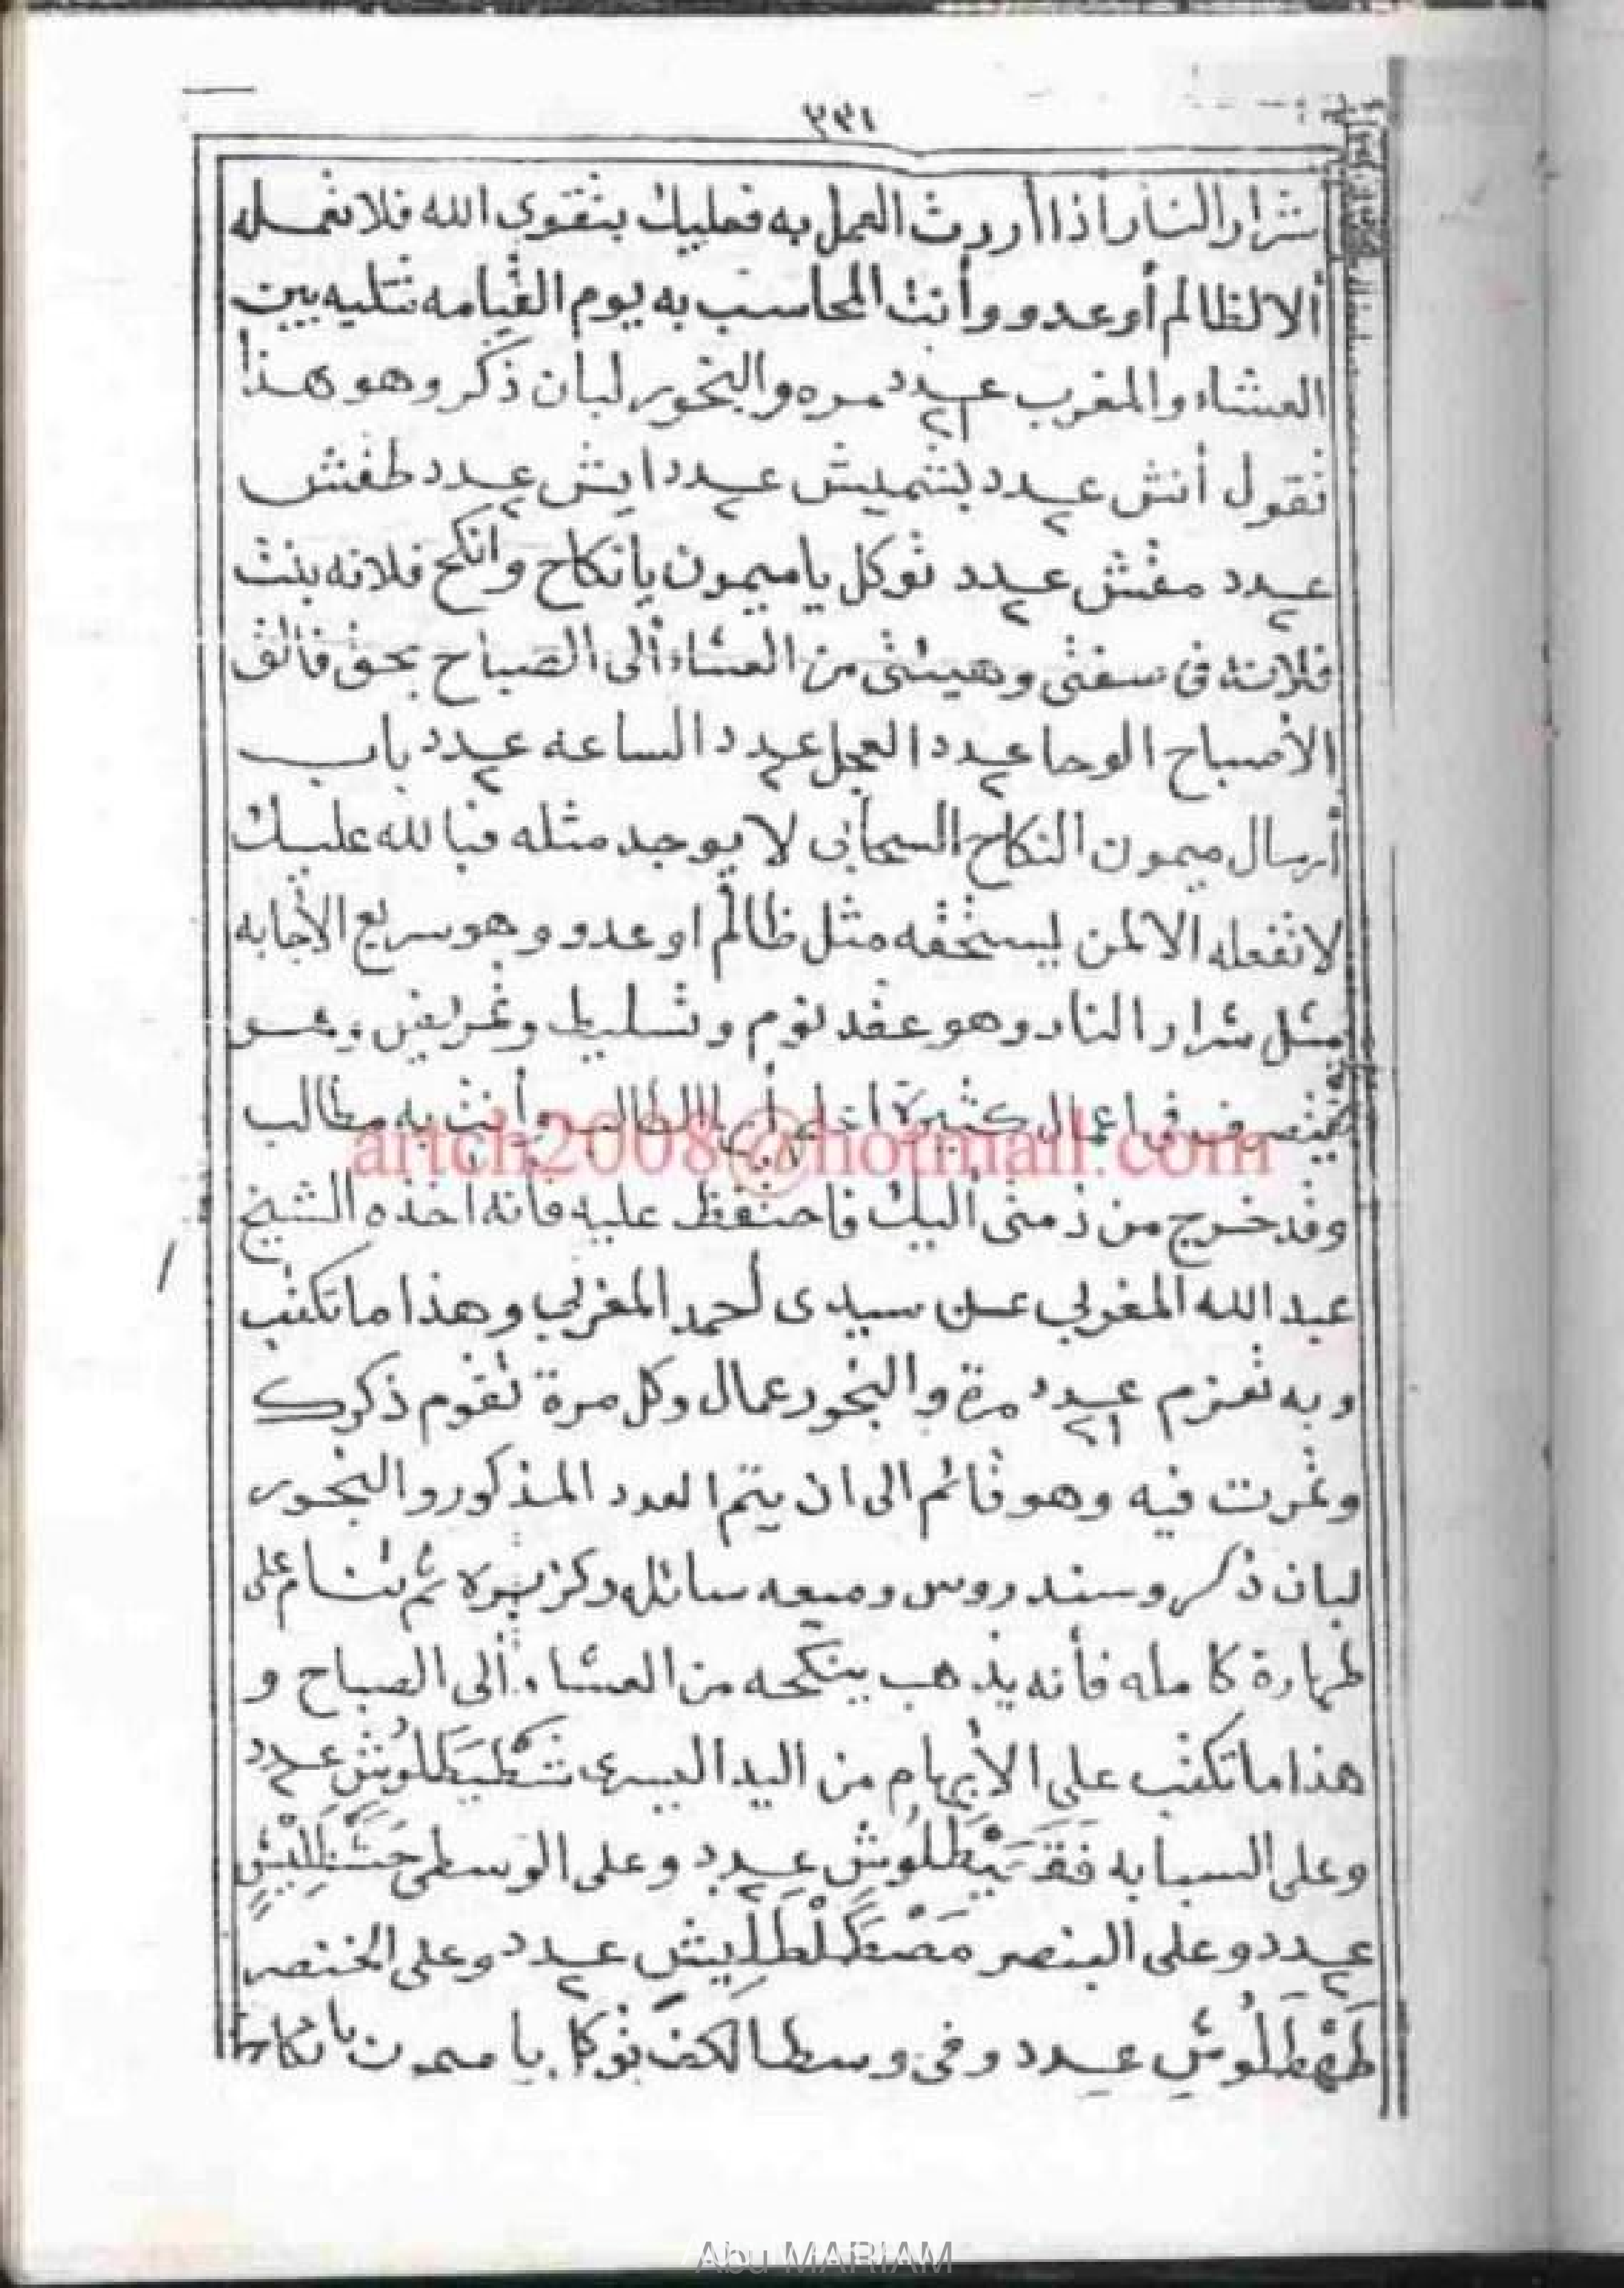 ٣٣١
شرار النار أذا أردت العمل به فعليك بتقوى الله فلا تعمله
ألا لظالم أو عدو وأنت المحاسب به يوم القيامه تتليه بين
العشاء والمغرب عدد ٢١ مره والبخور لبان ذكر وهو هذا
تقول أنش عدد ٢ بشميش عدد ٢ ايش عدد ٢ طفش
عدد ٢ مفش عدد ٢ توكل يا ميمون يا نكاح وانكح فلانه بنت
فلانة فى صفتى وهيئتى من العشاء ألى الصباح بحق فالق
الأصباح الوحا عدد ٢ العجل عدد ٢ الساعه عدد ٢ باب
أرسال ميمون النكاح السحابى لا يوجد مثله فبالله عليك
لا تفعله الا لمن يستحقه مثل ظالم او عدو وهو سريع الأجابه
مثل شرار النار وهو عقد نوم وتسليط وهو
يتصرف فى اعمال كثيرة أيها الطالب وأنت به مطالب
artch2008@hotmail.com
وقد خرج من ذمتى أليك فاحتفظ عليه فأنه اخذه الشيخ
عبد الله المغربي عن سيدى أحمد المغربي وهذا ما تكتب
وبه تعزم عدد ٢١ مرة والبخور عمال وكل مرة تقوم ذكرك
فيه وهو قائم الى ان يتم العدد المذكور والبخور
لبان ذكر وسندروس وميعه سائل وكزبره ثم تنام على
طهارة كامله فأنه يذهب ينكحه من العشاء ألى الصباح و
هذا ما تكتب على الأبهام من اليد اليسرى عدد ٢
وعلى السبابه عدد ٢ وعلى الوسطى
عدد ٢ وعلى البنصر عدد ٢ وعلى الخنصر
عدد وفى وسط الكف توكل يا ميمون يا نكاح
Abu MARIAM